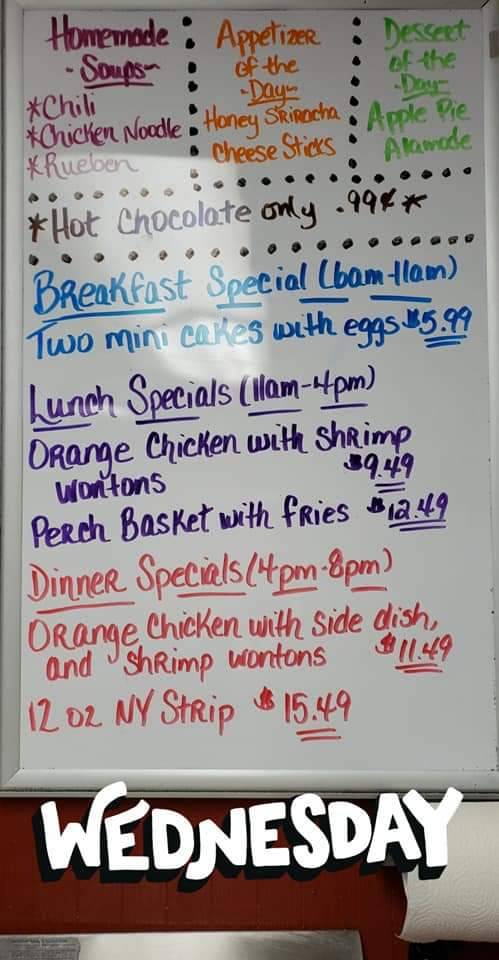 Homemade
-Soups-
*Chili
*Chicken Noodle
*Rueben
Appetizer
of the
-Day-
Honey Sriracha
Cheese Sticks
Dessert
of the
-Day-
Apple Pie
Alamode
*Hot Chocolate only .99¢*
Breakfast Special (6am-11am)
Two mini cakes with eggs $5.99
Lunch Specials (11am-4pm)
Orange Chicken with Shrimp
wontons $9.49
Perch Basket with fries $12.49
Dinner Specials (4pm-8pm)
Orange Chicken with side dish,
and shrimp wontons $11.49
12 oz NY Strip $15.49
WEDNESDAY